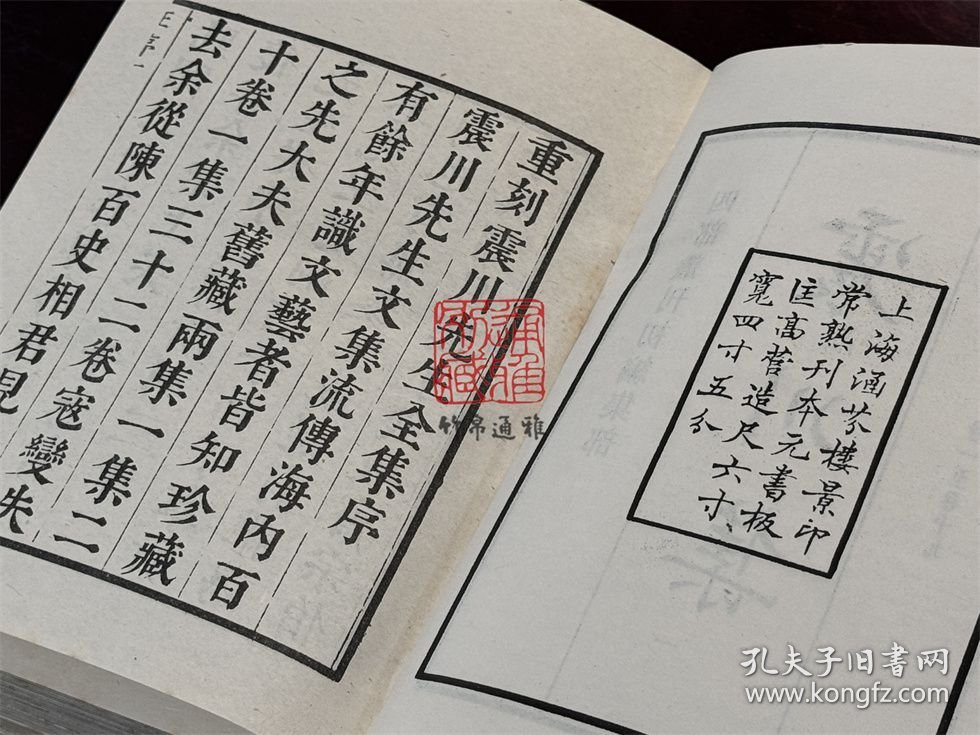 上海涵芬樓景印
常熟刊本元書板
匡高营造尺六寸
寬四寸五分
重刻震川先生全集序
震川先生文集流傳海内百
有餘年識文藝者皆知珍藏
之先大夫舊藏兩集一集二
十卷一集三十二卷寇變失
去余從陳百史相君見
竹帛通雅
孔夫子旧書网
www.kongfz.com